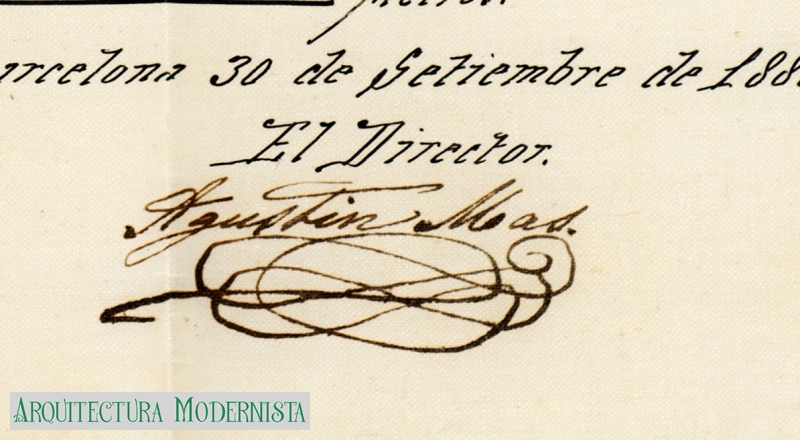 metros.
arcelona 30 de Setiembre de 188
El Director.
Agustin Mas.
ARQUITECTURA MODERNISTA